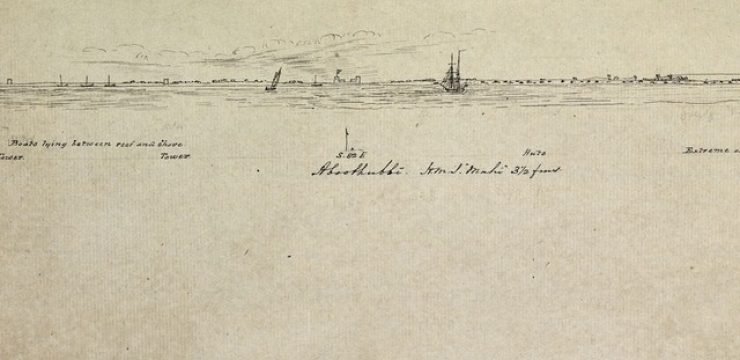 Boats lying between reef and shore
Tower Tower Huts Extreme
Aboothubbi. H.M.S. 3½ fms